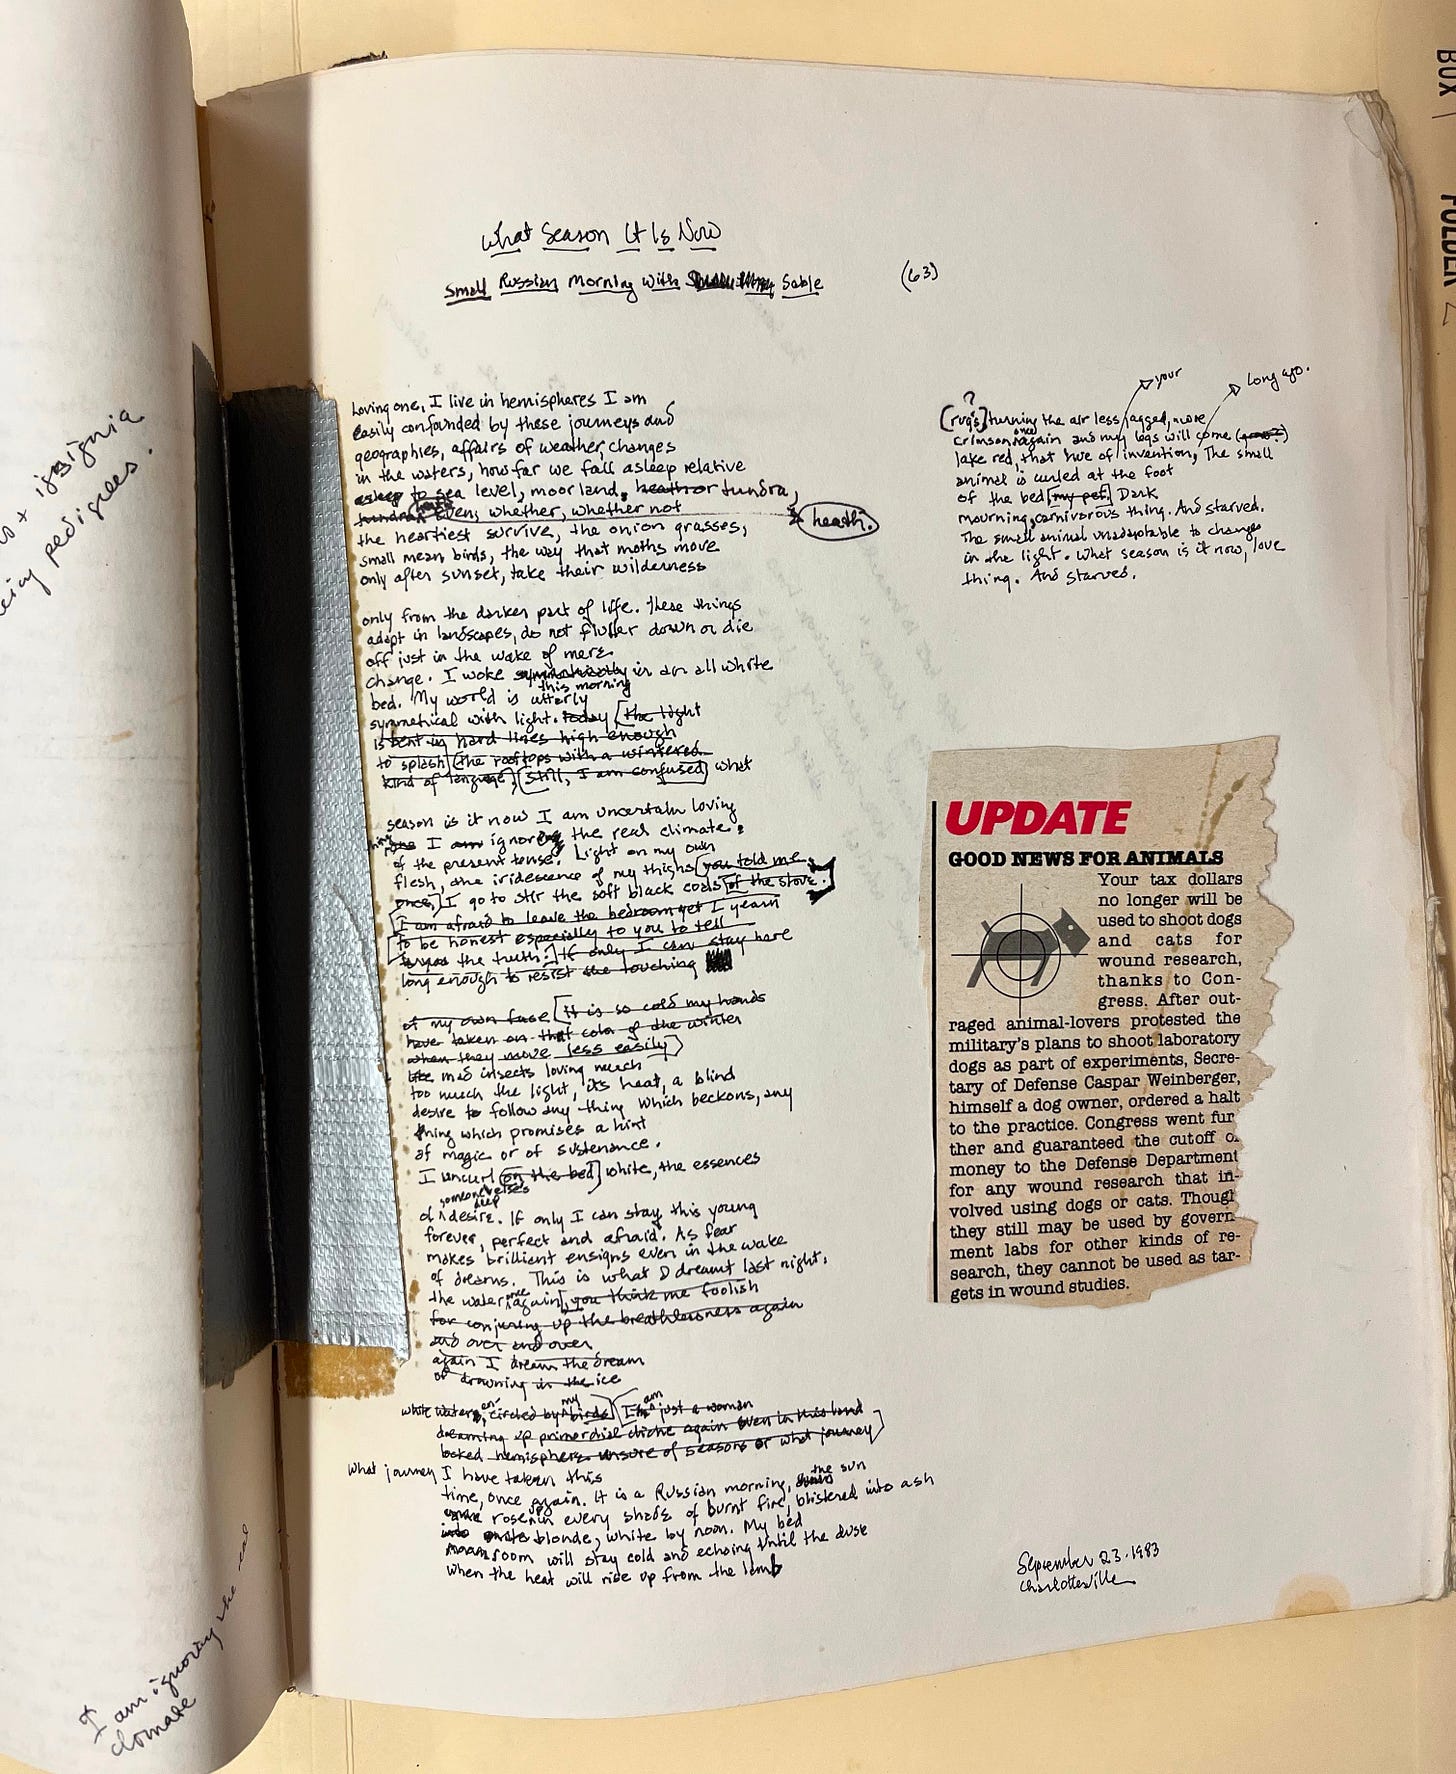 What Season It Is Now
Small Russian Morning With Sable
(63)
Loving one, I live in hemispheres I am
easily confounded by these journeys and
geographies, affairs of weather, changes
in the waters, how far we fall asleep relative
asleep to sea level, moorland, heath or tundra,
tundra. heath Even, whether, whether not
heath.
the heartiest survive, the onion grasses,
small mean birds, the way that moths move
only after sunset, take their wilderness
only from the darker part of life. These things
adapt in landscapes, do not flutter down or die
off just in the wake of mere
change. I woke symmetrically in an all white
this morning
bed. My world is utterly
symmetrical with light. today [the light
is bent in hard lines high enough
to splash [the rooftops with a wintered
kind of language,] [Still, I am confused] what
season is it now I am uncertain loving
thing I am ignoring the real climate
of the present tense. Light on my own
flesh, the iridescence of my thighs [you told me
once,] I go to stir the soft black coals [of the stove.]
[I am afraid to leave the bedroom yet I yearn
[to be honest especially to you to tell
the truth.] If only I can stay here
long enough to resist the touching
of my own face [It is so cold my hands
have taken on that color of the winter
when they move less easily]
like mad insects loving much
too much the light, its heat, a blind
desire to follow any thing which beckons, any
thing which promises a hint
of magic or of sustenance.
I uncurl [on the bed] white, the essences
someone else's
deep
of desire. If only I can stay this young
forever, perfect and afraid. As fear
makes brilliant ensigns even in the wake
of dreams. This is what I dreamt last night,
the water once again [, you think me foolish
for conjuring up the breathlessness again
and over and over
again I dream the dream
of drowning in the ice
white water, circled by my birds] [I am just a woman
dreaming up primordial cliche again even in this land
locked hemisphere unsure of seasons or what journey]
What journey I have taken this
time, once again. It is a Russian morning, the sun
rose in every shade of burnt fire, blistered into ash
into blonde, white by noon. My bed
room will stay cold and echoing until the dusk
when the heat will rise up from the lamb
your
Long ago.
?
[rug's] turning the air less jagged, more
crimson once again and my legs will come
lake red, that hue of invention, The small
animal is curled at the foot
of the bed [my pet] Dark
mourning, carnivorous thing. And starved.
The small animal unadaptable to changes
in the light. What season is it now, love
thing. And starved.
UPDATE
GOOD NEWS FOR ANIMALS
Your tax dollars
no longer will be
used to shoot dogs
and cats for
wound research,
thanks to Con-
gress. After out-
raged animal-lovers protested the
military's plans to shoot laboratory
dogs as part of experiments, Secre-
tary of Defense Caspar Weinberger,
himself a dog owner, ordered a halt
to the practice. Congress went fur
ther and guaranteed the cutoff o
money to the Defense Department
for any wound research that in-
volved using dogs or cats. Though
they still may be used by govern
ment labs for other kinds of re-
search, they cannot be used as tar-
gets in wound studies.
September 23. 1983
Charlottesville
insignia
pedigrees.
I am ignoring the real
climate
BOX 1
FOLDER 2